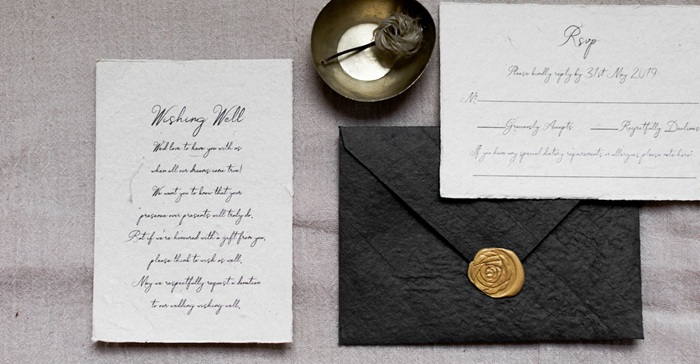 Wishing Well
We'd love to have you with us
when all our dreams come true!
We want you to know that your
presence over presents will truly do.
But if we're honoured with a gift from you,
please think to wish us well.
May we respectfully request a donation
to our wedding wishing well.
Rsvp
Please kindly reply by 31st May 2019
M
Graciously Accepts Regretfully Declines
If you have any special dietary requirements or allergies please note here: